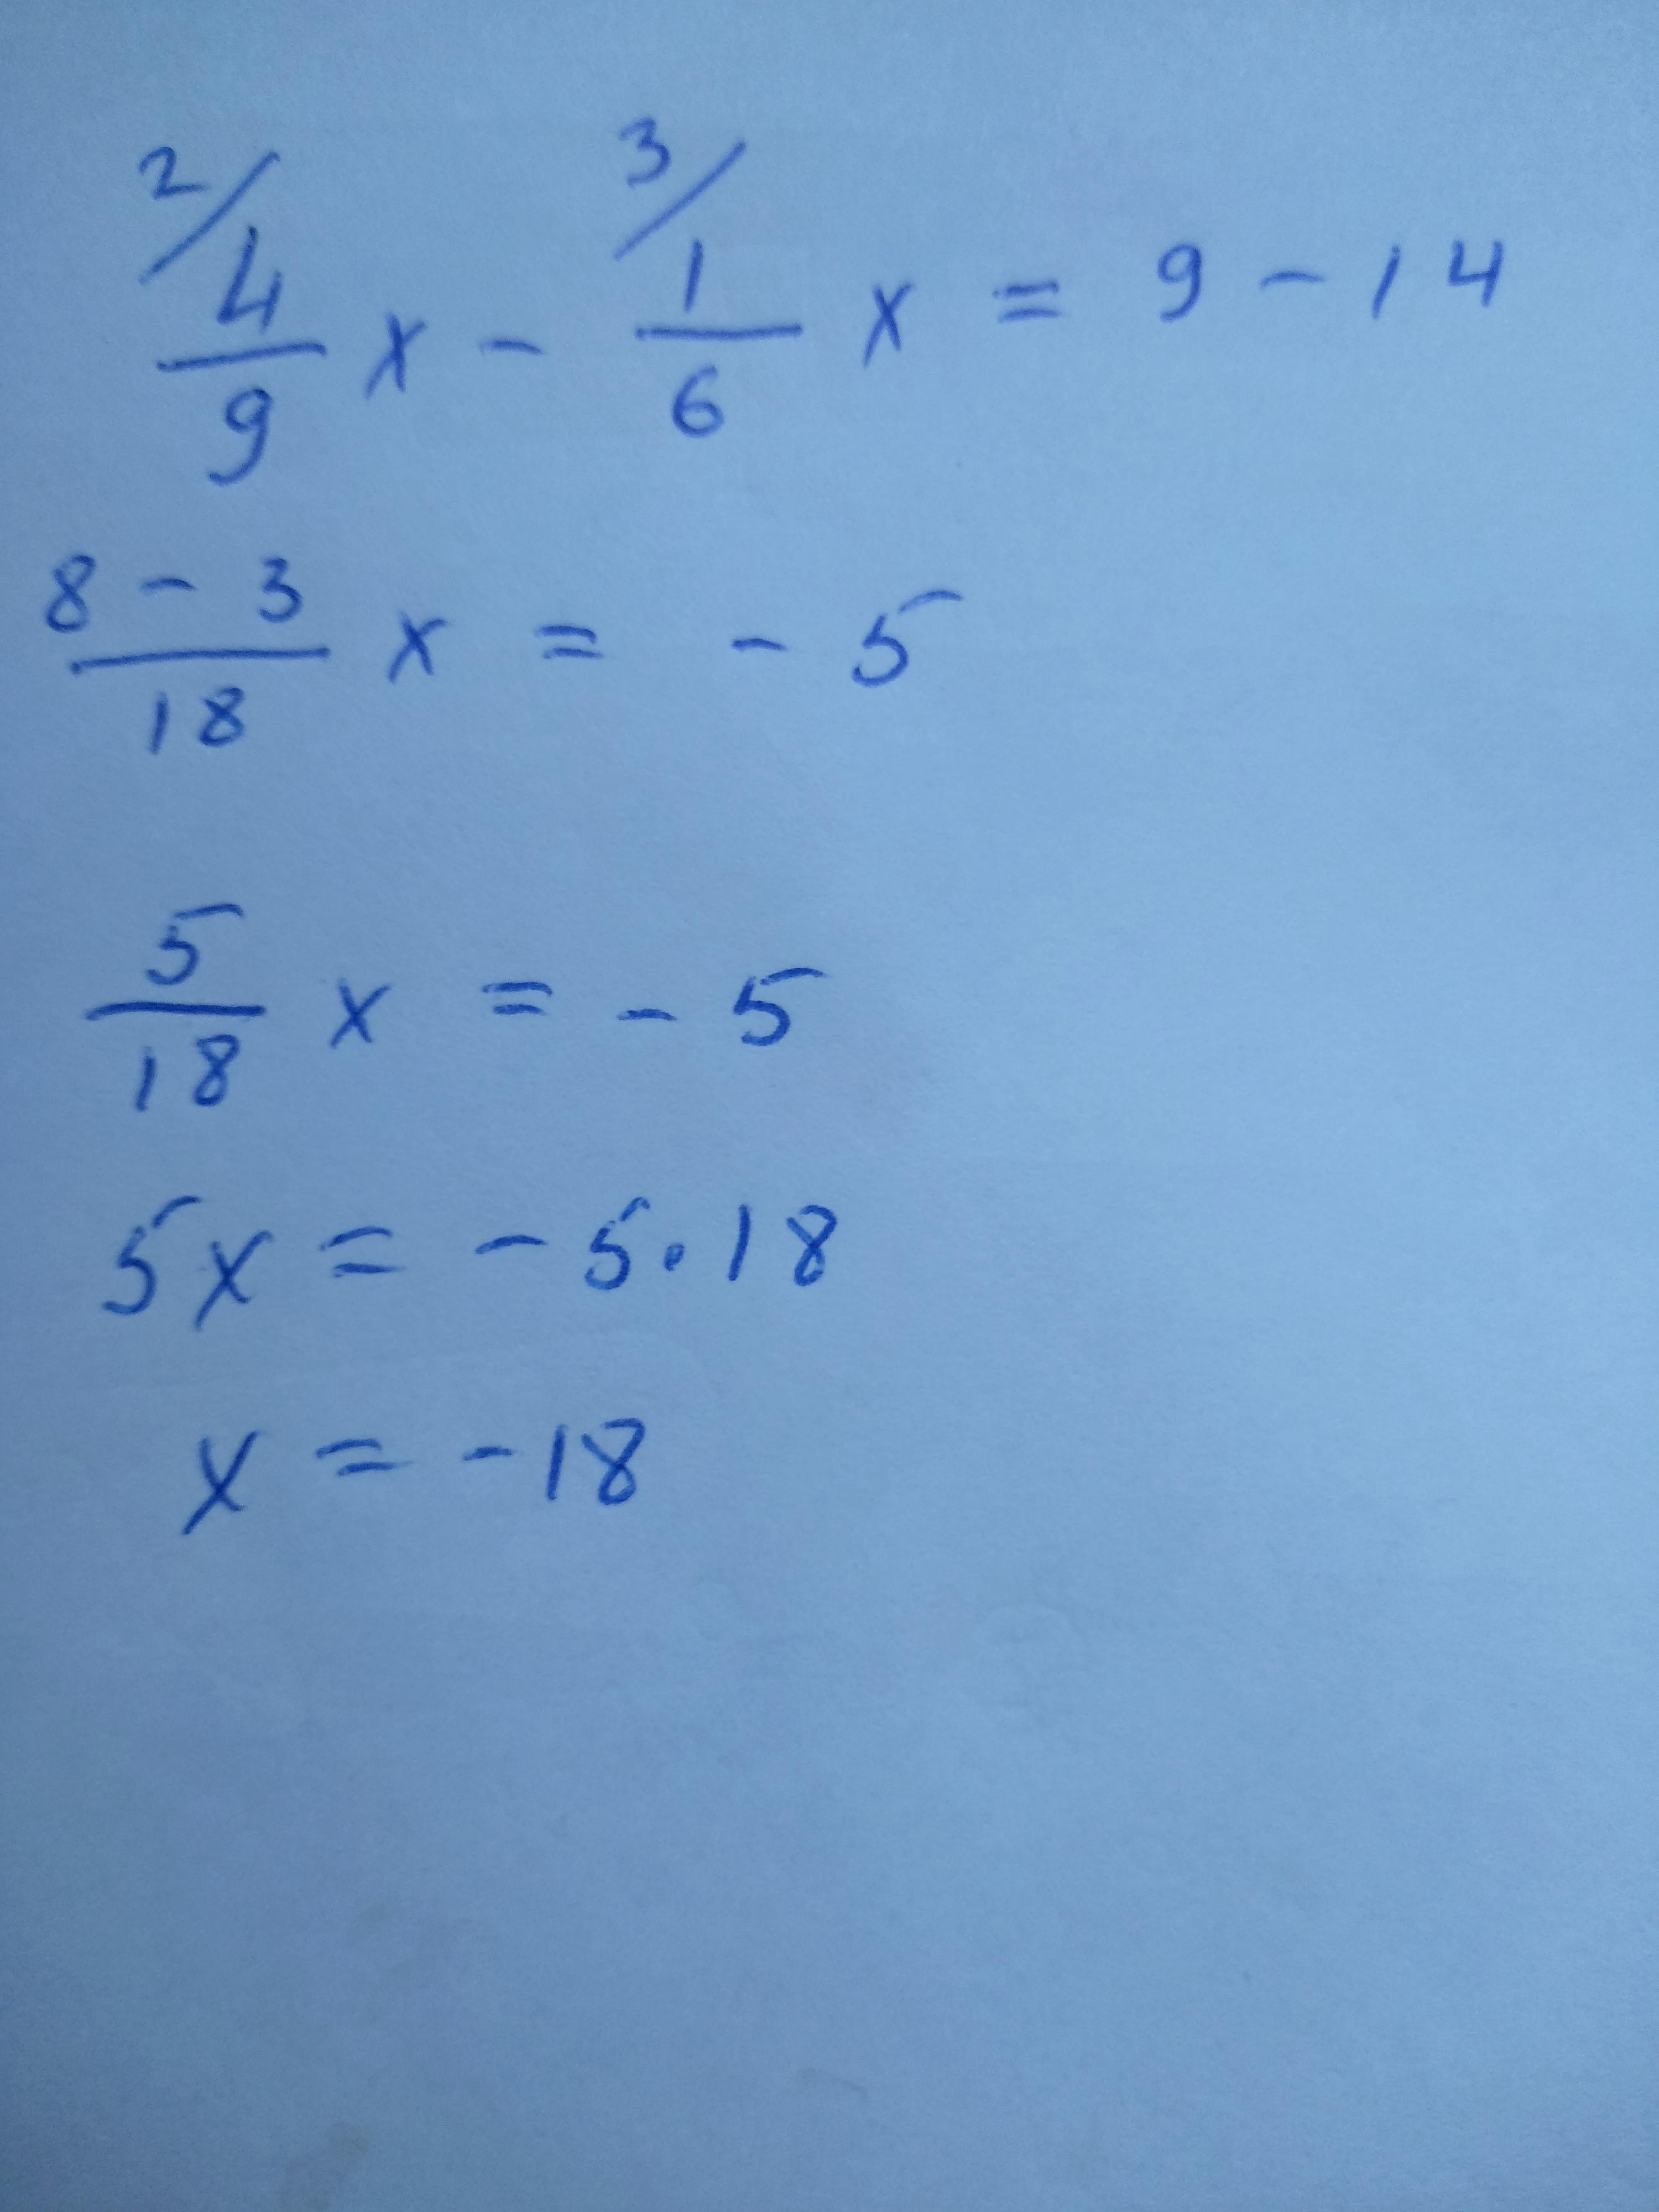 2/ 4/9 x - 3/ 1/6 x = 9 - 14
8 - 3/18 x = - 5
5/18 x = - 5
5x = - 5 · 18
x = - 18